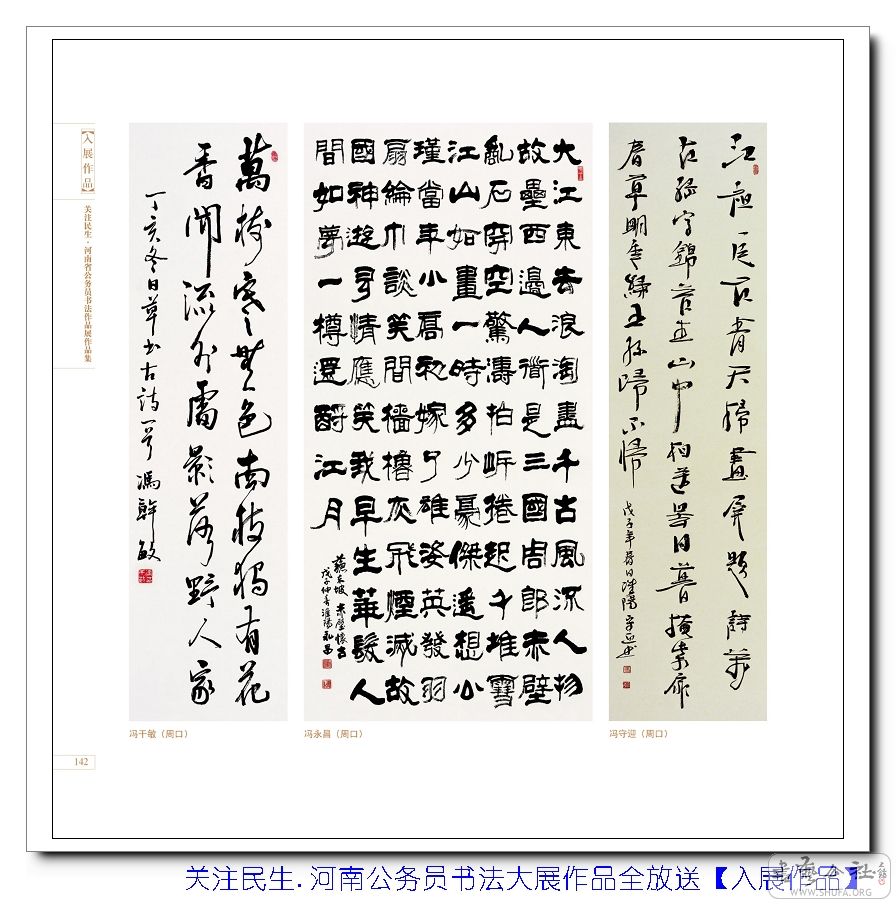 【入展作品】
关注民生·河南省公务员书法作品展作品集
萬樹寒無色南枝獨有花
香聞流水處影落野人家
丁亥冬日草书古詩一首 馮幹敏
大江東去浪淘盡千古風流人物
故壘西邊人衜是三國周郎赤壁
亂石穿空驚濤拍岸捲起千堆雪
江山如畫一時多少豪傑遥想公
瑾當年小喬初嫁了雄姿英發羽
扇綸巾談笑間檣櫓灰飛煙滅故
國神遊多情應笑我早生華髮人
間如夢一樽還酹江月
蘇東坡 赤壁懷古
戊子仲春淮陽永昌
春草明年綠王孫歸不歸
戊子年春日淮陽守迎書
冯干敏（周口）
冯永昌（周口）
冯守迎（周口）
142
关注民生.河南公务员书法大展作品全放送【入展作品】
WWW.SHUFA.ORG